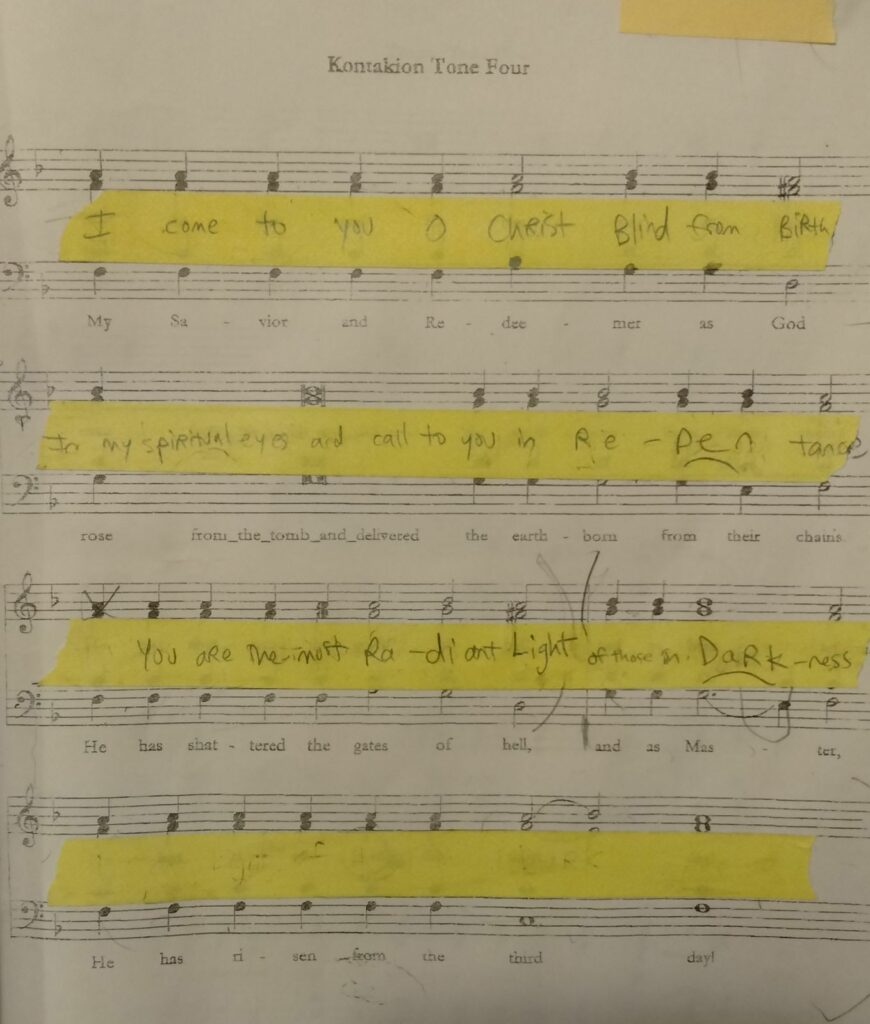 Kontakion Tone Four
I come to you O Christ Blind from BiRth,
My Sa - vior and Re - dee - mer as God
In my spiRitual eyes and call to you in Re - Pen tance
rose from_the_tomb_and_delivered the earth - born from their chains
You aRe the most Ra - diant Light of those in DaRk - ness
He has shat - tered the gates of hell, and as Mas - ter,
He has ri - sen from the third day!